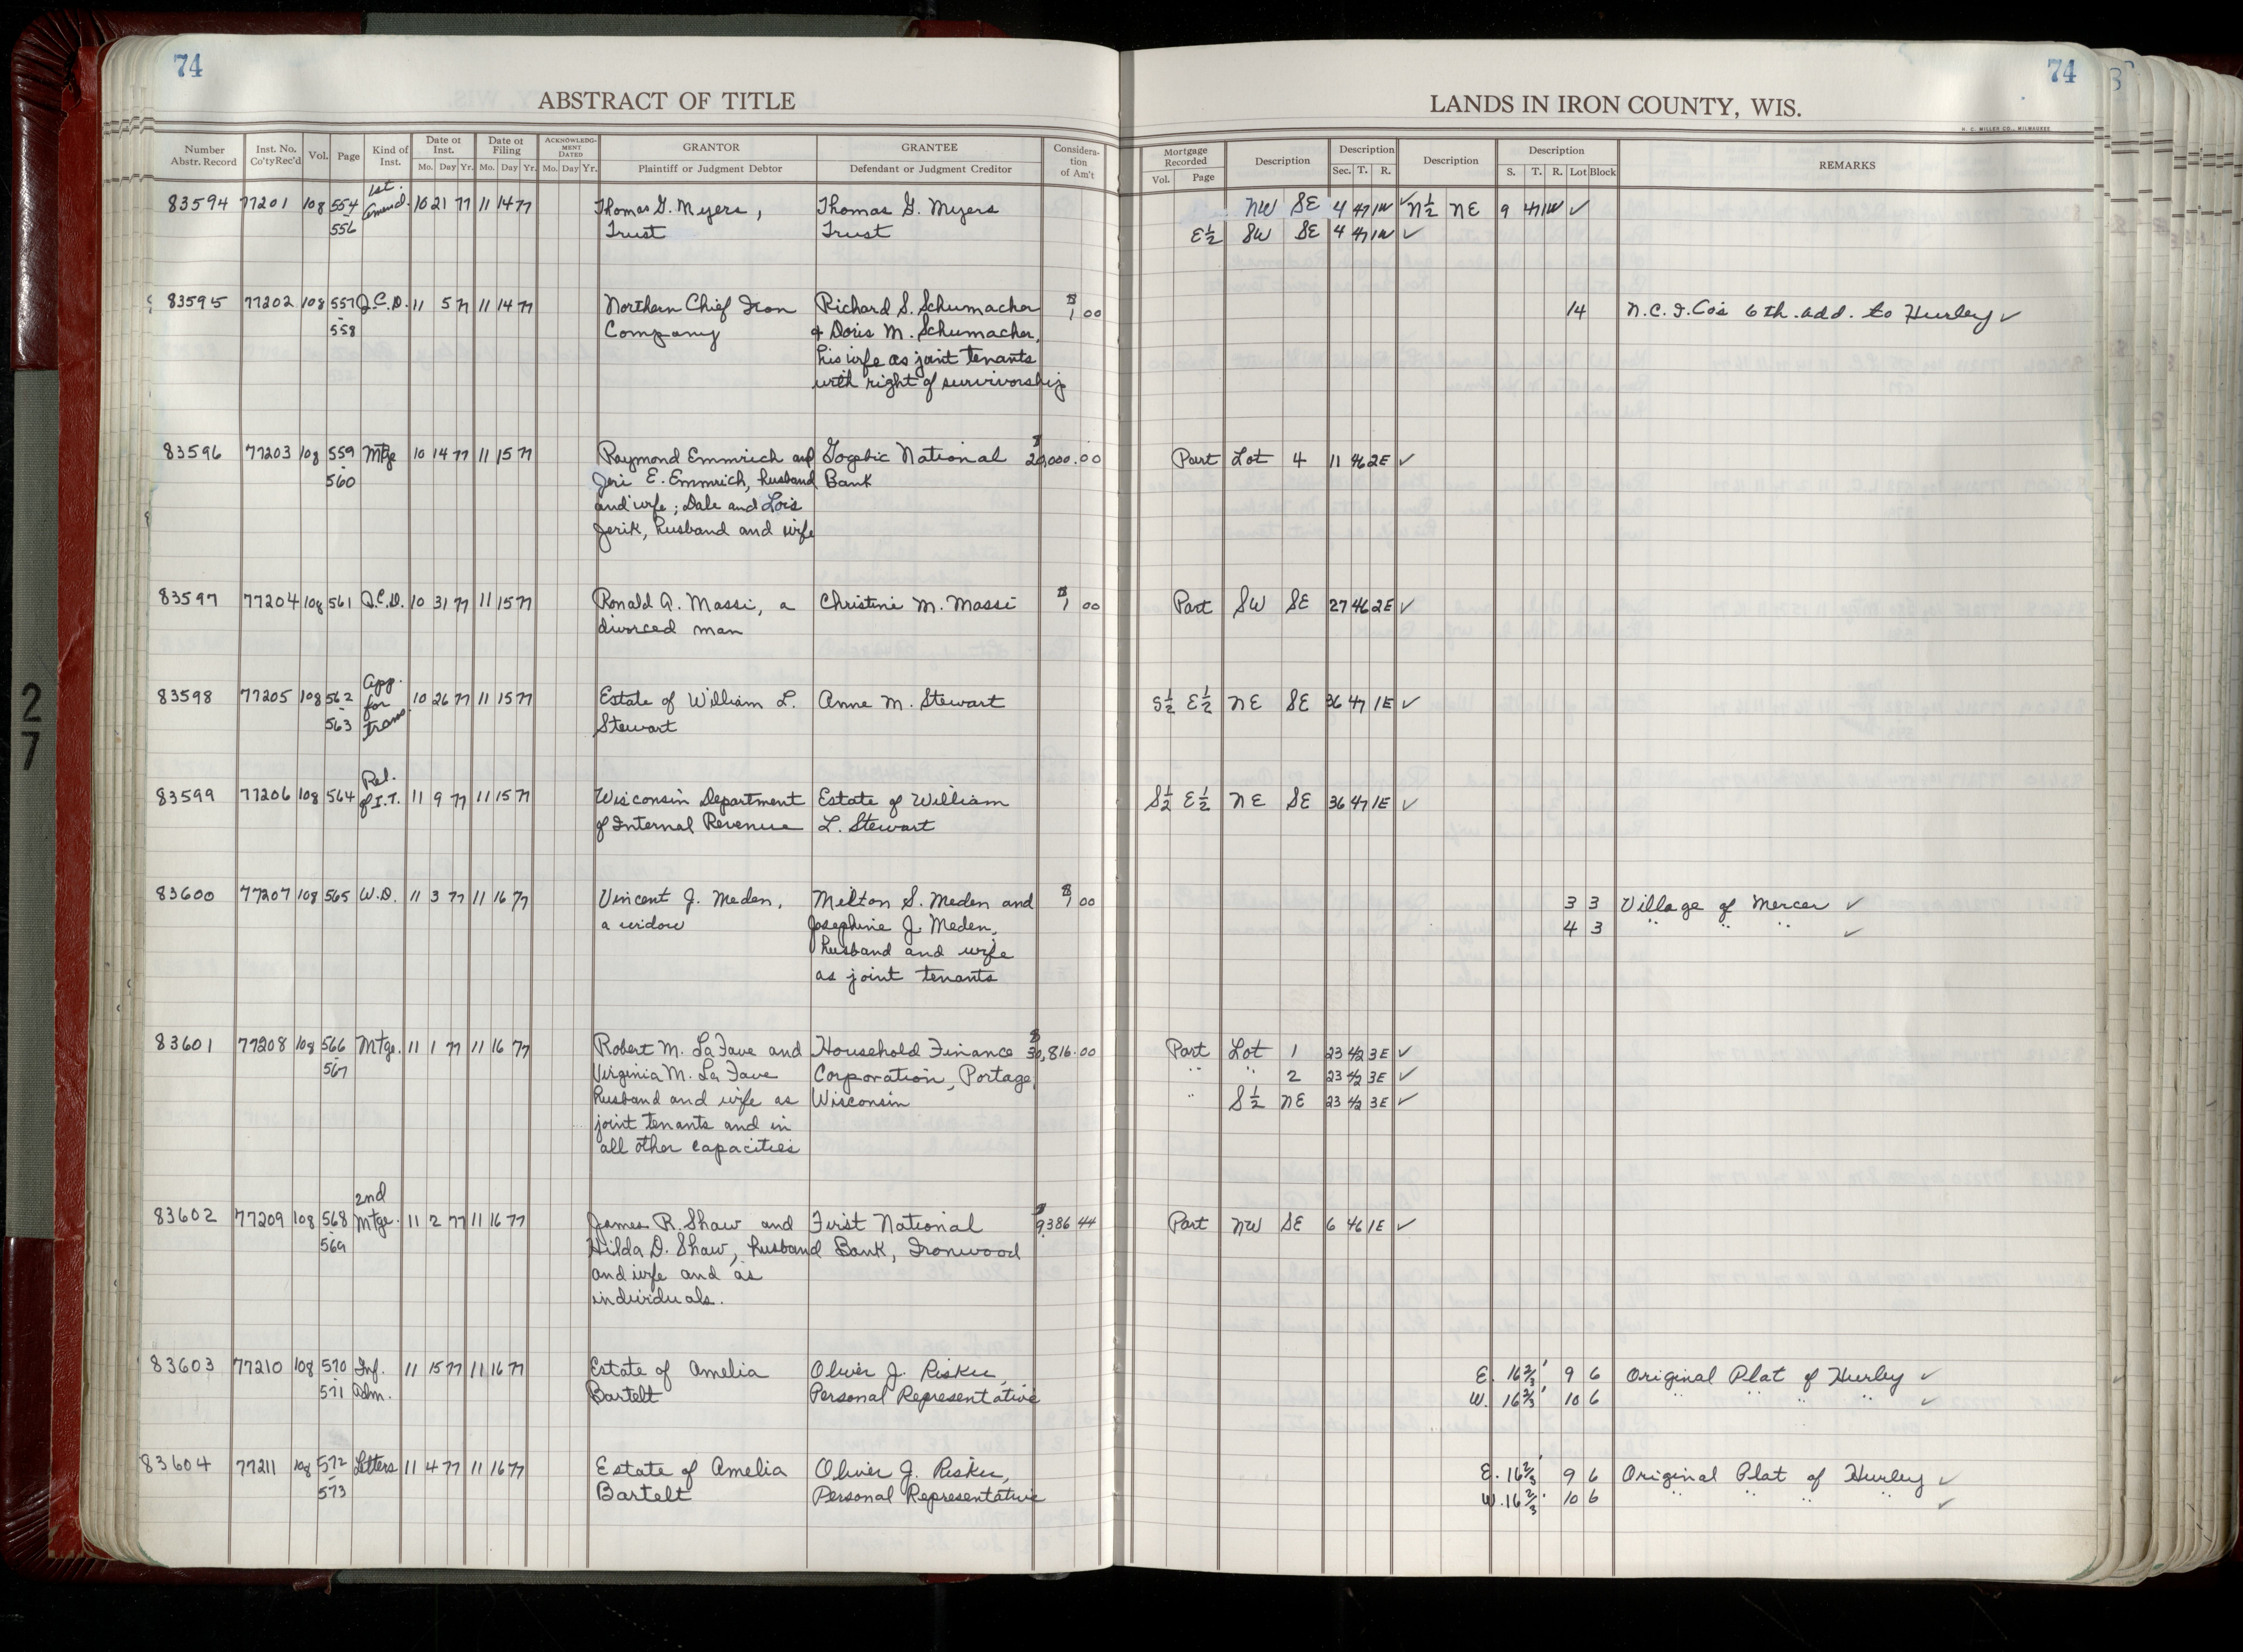 74
74
ABSTRACT OF TITLE
LANDS IN IRON COUNTY, WIS.
H. C. MILLER CO., MILWAUKEE
Number Abstr. Record Inst. No. Co'tyRec'd Vol. Page Kind of Inst. Date of Inst. Mo. Day Yr. Date of Filing Mo. Day Yr. ACKNOWLEDGMENT DATED Mo. Day Yr. GRANTOR Plaintiff or Judgment Debtor GRANTEE Defendant or Judgment Creditor Consideration of Am't
Mortgage Recorded Vol. Page Description Description Sec. T. R. Description Description S. T. R. Lot Block REMARKS
83594 77201 108 554 - 556 1st. amend. 10 21 77 11 14 77 Thomas G. Myers, Thomas G. Myers NW SE 4 47 1W ✓ N½ NE 9 47 1W ✓
Trust Trust E½ SW SE 4 47 1W ✓
83595 77202 108 557 - 558 Q.C.D. 11 5 77 11 14 77 Northern Chief Iron Richard S. Schumacher $1 00 14 N.C.I.Co's 6th. add. to Hurley ✓
Company & Doris M. Schumacher,
his wife as joint tenants
with right of survivorship
83596 77203 108 559 - 560 Mtge 10 14 77 11 15 77 Raymond Emmrich and Gogebic National $20,000.00 Part Lot 4 11 46 2E ✓
Jeri E. Emmrich, husband Bank
and wife; Dale and Lois
Jerik, husband and wife
83597 77204 108 561 Q.C.D. 10 31 77 11 15 77 Ronald A. Massi, a Christine M. Massi $1 00 Part SW SE 27 46 2E ✓
divorced man
83598 77205 108 562 - 563 App. for trans. 10 26 77 11 15 77 Estate of William L. Anne M. Stewart S½ E½ NE SE 36 47 1E ✓
Stewart
83599 77206 108 564 Rel. of I.T. 11 9 77 11 15 77 Wisconsin Department Estate of William S½ E½ NE SE 36 47 1E ✓
of Internal Revenue L. Stewart
83600 77207 108 565 W.D. 11 3 77 11 16 77 Vincent J. Meden, Milton S. Meden and $1 00 3 3 Village of Mercer ✓
a widow Josephine J. Meden, 4 3 " " " ✓
husband and wife
as joint tenants
83601 77208 108 566 - 567 Mtge. 11 1 77 11 16 77 Robert M. LaFave and Household Finance $30,816.00 Part Lot 1 23 42 3E ✓
Virginia M. La Fave Corporation, Portage, " " 2 23 42 3E ✓
husband and wife as Wisconsin " S½ NE 23 42 3E ✓
joint tenants and in
all other capacities
83602 77209 108 568 - 569 2nd Mtge. 11 2 77 11 16 77 James R. Shaw and First National $9,386 44 Part NW SE 6 46 1E ✓
Hilda D. Shaw, husband Bank, Ironwood
and wife and as
individuals.
83603 77210 108 570 - 571 Inf. Adm. 11 15 77 11 16 77 Estate of Amelia Oliver J. Risku, E. 16⅔' 9 6 Original Plat of Hurley ✓
Bartelt Personal Representative W. 16⅔' 10 6 " " " ✓
83604 77211 108 572 - 573 Letters 11 4 77 11 16 77 Estate of Amelia Oliver J. Risku, E. 16⅔' 9 6 Original Plat of Hurley ✓
Bartelt Personal Representative W. 16⅔' 10 6 " " " " ✓
27